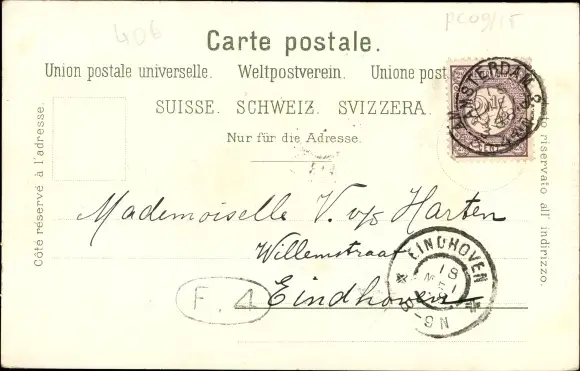 406
pc09/15
Carte postale.
Union postale universelle. Weltpostverein. Unione post
SUISSE. SCHWEIZ. SVIZZERA.
Nur für die Adresse.
Côté réservé à l'adresse.
riservato all' indirizzo.
AMSTERDAM
Mademoiselle V. v/s Harten
Willemstraat
Eindhoven
F. 4
EINDHOVEN
18
MEI
8-9N